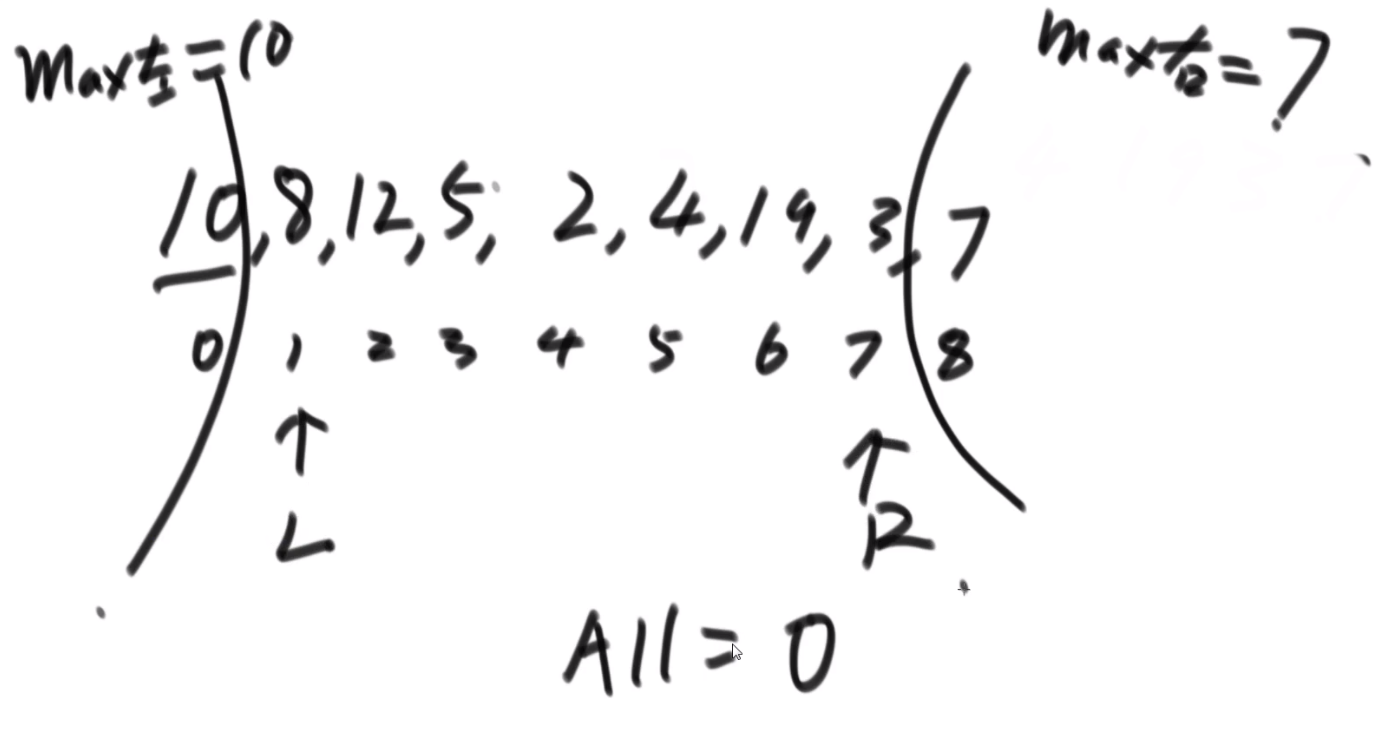 max左=10
max右=7
10,8,12,5, 2,4,19,3,7
0 1 2 3 4 5 6 7 8
L
R
All=0